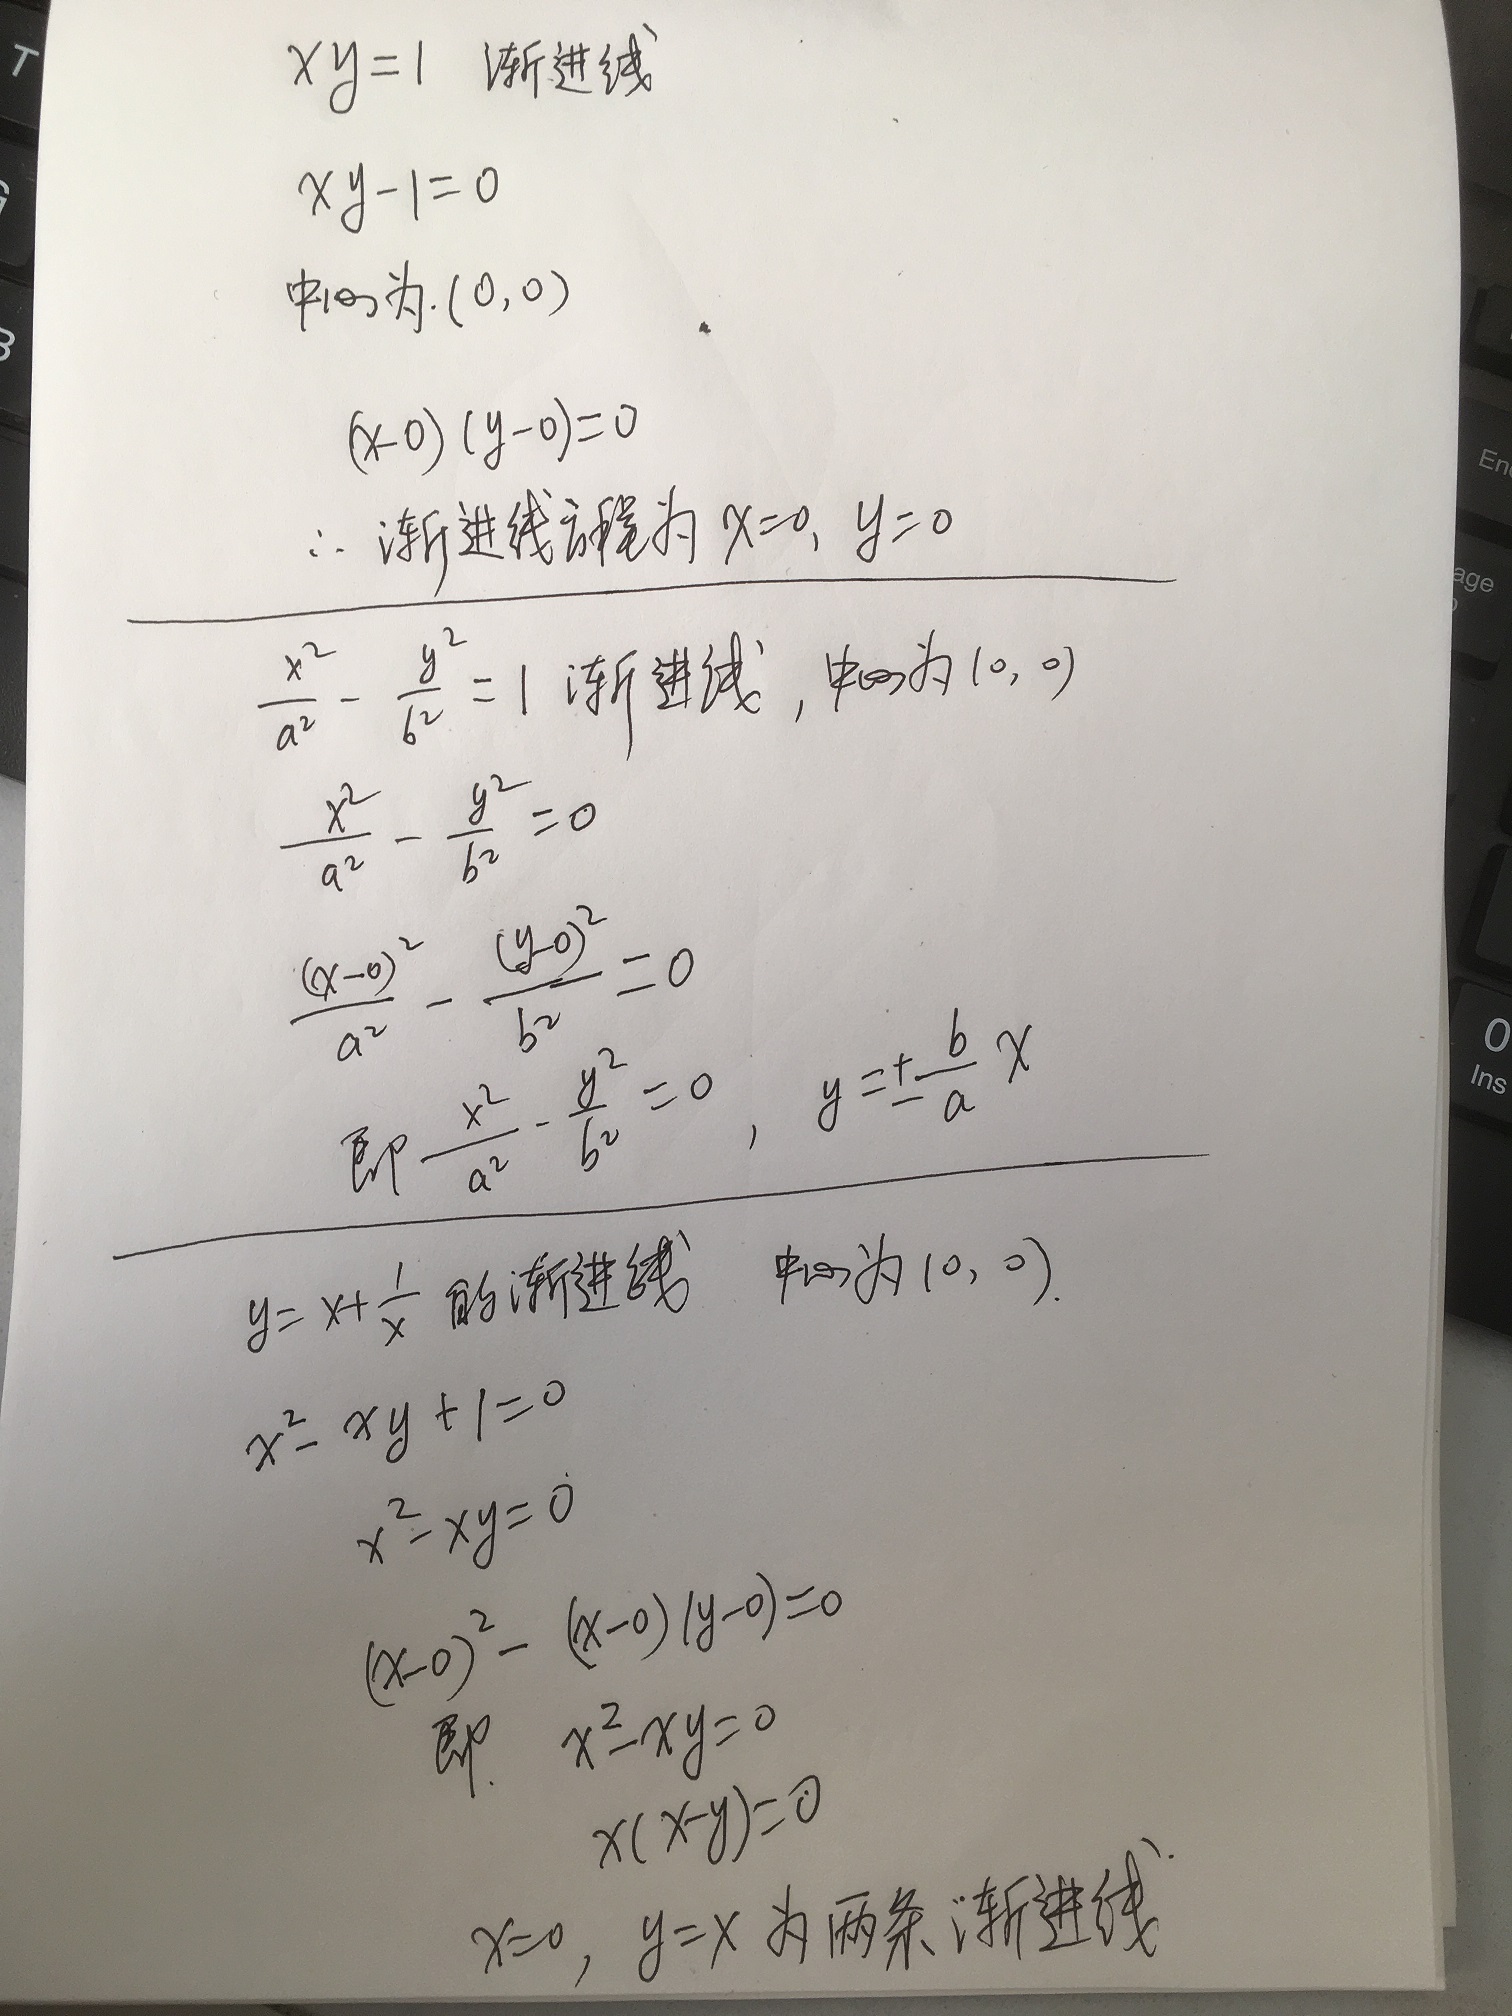 xy=1 渐进线
xy-1=0
中心为(0,0)
(x-0)(y-0)=0
∴ 渐进线方程为 x=0, y=0
x²/a² - y²/b² = 1 渐进线, 中心为(0,0)
x²/a² - y²/b² = 0
(x-0)²/a² - (y-0)²/b² = 0
即 x²/a² - y²/b² = 0, y=± b/a x
y=x+1/x 的渐进线 中心为(0,0).
x²-xy+1=0
x²-xy=0
(x-0)²-(x-0)(y-0)=0
即 x²-xy=0
x(x-y)=0
x=0, y=x 为两条渐进线
T
B
End
age
0
Ins